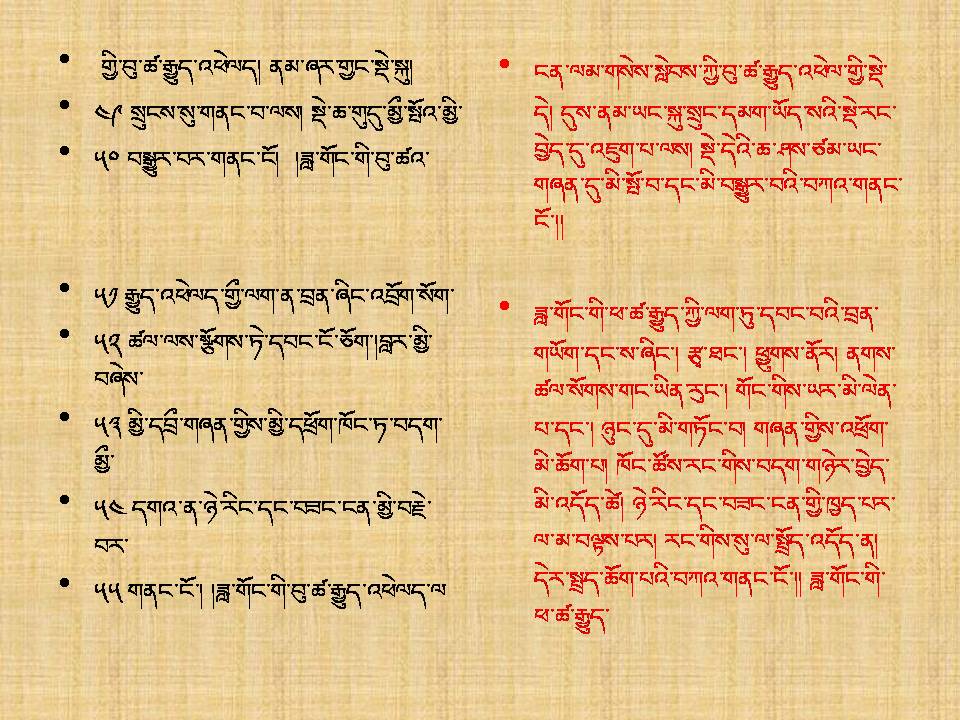 གྱི་བུ་ཚ་རྒྱུད་འཕེལད། ནམ་ཞར་གྱང་སྡེ་སྐུ།
༤༩ སྲུངས་སུ་གནང་བ་ལས། སྡེ་ཆ་གུདུ་མྱི་སྤོའ་མྱི་
༥༠ བསྒྱུར་བར་གནང་ངོ། །ཟླ་གོང་གི་བུ་ཚའ་
༥༡ རྒྱུད་འཕེལད་ཀྱི་ལག་ན་བྲན་ཞིང་འབྲོག་སོག་
༥༢ ཚལ་ལས་སྩོགས་ཏེ་དབང་ངོ་ཅོག།བླར་མྱི་
བཞེས་
༥༣ མྱི་དབྲི་གཞན་གྱིས་མྱི་དཕྲོག་ཁོང་ཏ་བདག་
མྱི་
༥༤ དགའ་ན་ཉེ་རིང་དང་བཟང་ངན་མྱི་བརྗེ་
བར་
༥༥ གནང་ངོ་། །ཟླ་གོང་གི་བུ་ཚ་རྒྱུད་འཕེལད་ལ
ངན་ལམ་གསེས་སླེབས་ཀྱི་བུ་ཚ་རྒྱུད་འཕེལ་གྱི་སྡེ་
དེ། དུས་ནམ་ཡང་སྐུ་སྲུང་དམག་ཡོད་སའི་སྡེ་རང་
བྱེད་དུ་འཇུག་པ་ལས། སྡེ་དེའི་ཆ་ཤས་ཙམ་ཡང་
གཞན་དུ་མི་སྤོ་བ་དང་མི་བསྒྱུར་བའི་བཀའ་གནང་
ངོ་།།
ཟླ་གོང་གི་ཕ་ཚ་རྒྱུད་ཀྱི་ལག་ཏུ་དབང་བའི་བྲན་
གཡོག་དང་ས་ཞིང་། རྩྭ་ཐང་། ཕྱུགས་ནོར། ནགས་
ཚལ་སོགས་གང་ཡིན་རུང་། གོང་གིས་ཡར་མི་ལེན་
པ་དང་། ཉུང་དུ་མི་གཏོང་བ། གཞན་གྱིས་འཕྲོག་
མི་ཆོག་པ། ཁོང་ཚོས་རང་གིས་བདག་གཉེར་བྱེད་
མི་འདོད་ཚེ། ཉེ་རིང་དང་བཟང་ངན་གྱི་ཁྱད་པར་
ལ་མ་བལྟས་པར། རང་གིས་སུ་ལ་སྤྲོད་འདོད་ན།
དེར་སྤྲད་ཆོག་པའི་བཀའ་གནང་ངོ་།། ཟླ་གོང་གི་
ཕ་ཚ་རྒྱུད་